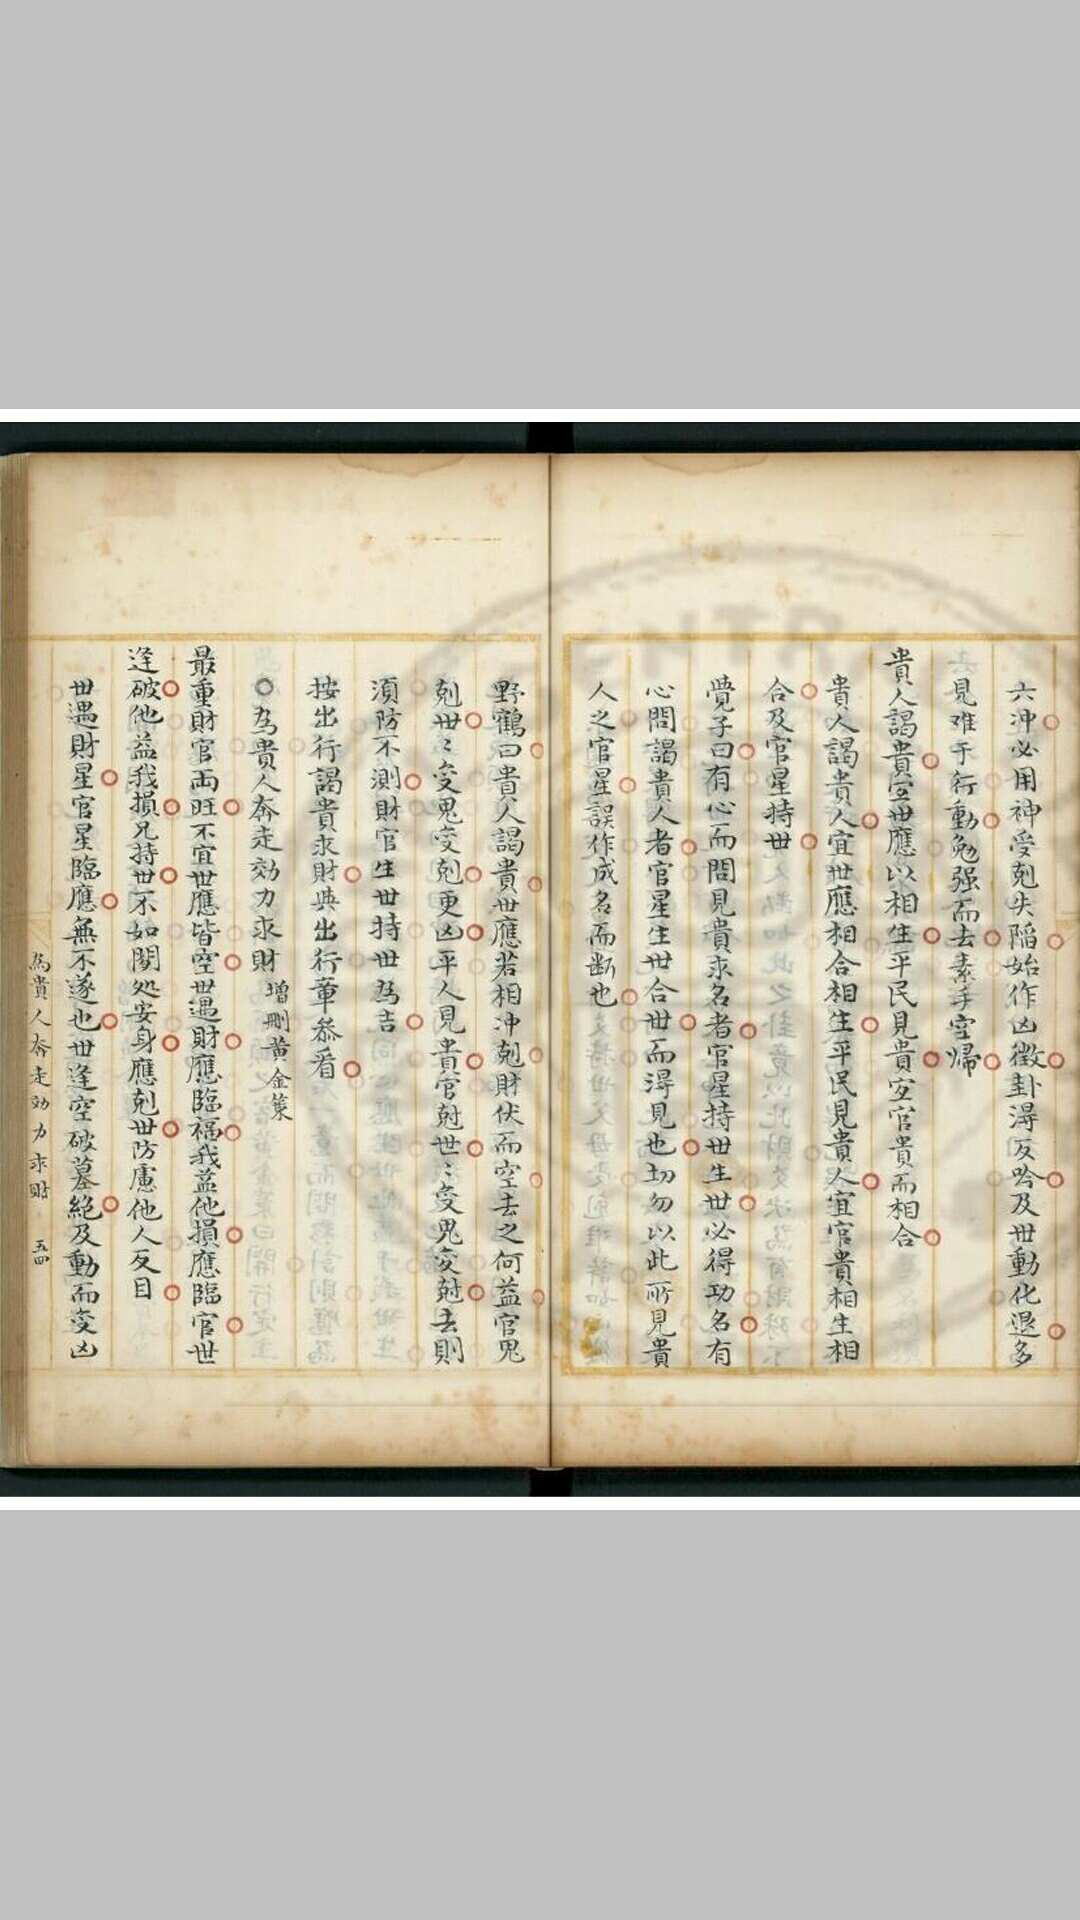 六冲必用神受剋失陷始作凶徵卦淂反吟及世動化退多
見难于行動勉强而去素手空歸
貴人謁貴宜世應以相生平民見貴宜官貴而相合
貴人謁貴人宜世應相合相生平民見貴人宜官貴相生相
合及官星持世
覺子曰有心而問見貴求名者官星持世生世必得功名有
心問謁貴人者官星生世合世而淂見也切勿以此所見貴
人之官星誤作成名而断也
野鶴曰貴人謁貴世應若相冲剋財伏而空去之何益官鬼
剋世〻変鬼変剋更凶平人見貴官尅世〻変鬼変尅去則
須防不測財官生世持世為吉
按出行謁貴求財與出行章叅看
○為貴人奔走効力求財 增刪黄金策
最重財官両旺不宜世應皆空世遇財應臨福我益他損應臨官世
逢破他益我損兄持世不如閑処安身應剋世防慮他人反目
世遇財星官星臨應無不遂也世逢空破墓絶及動而変凶
為貴人奔走効力求財 五四